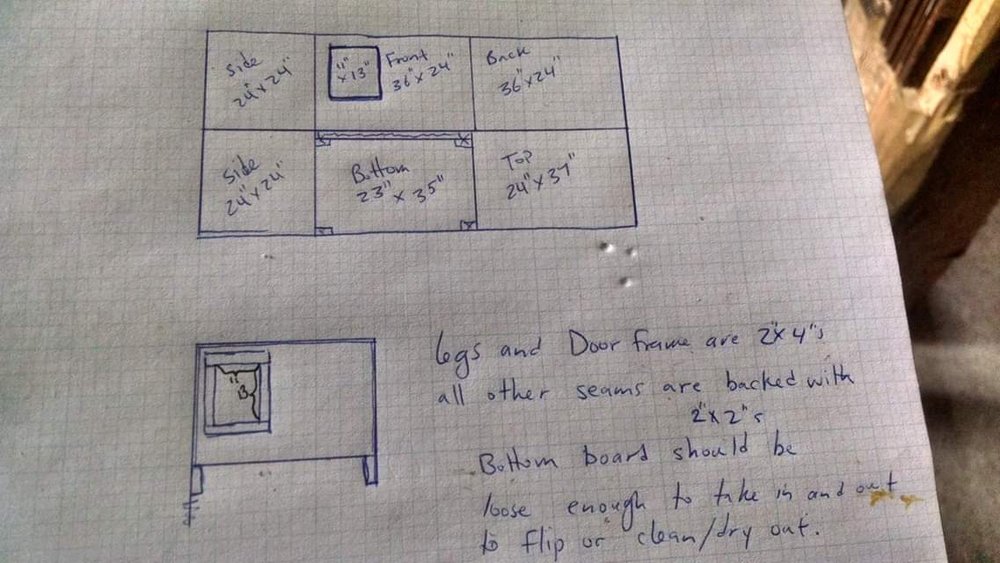 Side
24" x 24"
11"
x 13"
Front
36" x 24"
Back
36" x 24"
Side
24" x 24"
Bottom
23" x 35"
Top
24" x 37"
11"
13
legs and Door frame are 2"x4"s
all other seams are backed with
2"x2"s
Bottom board should be
loose enough to take in and out
to flip or clean/dry out.